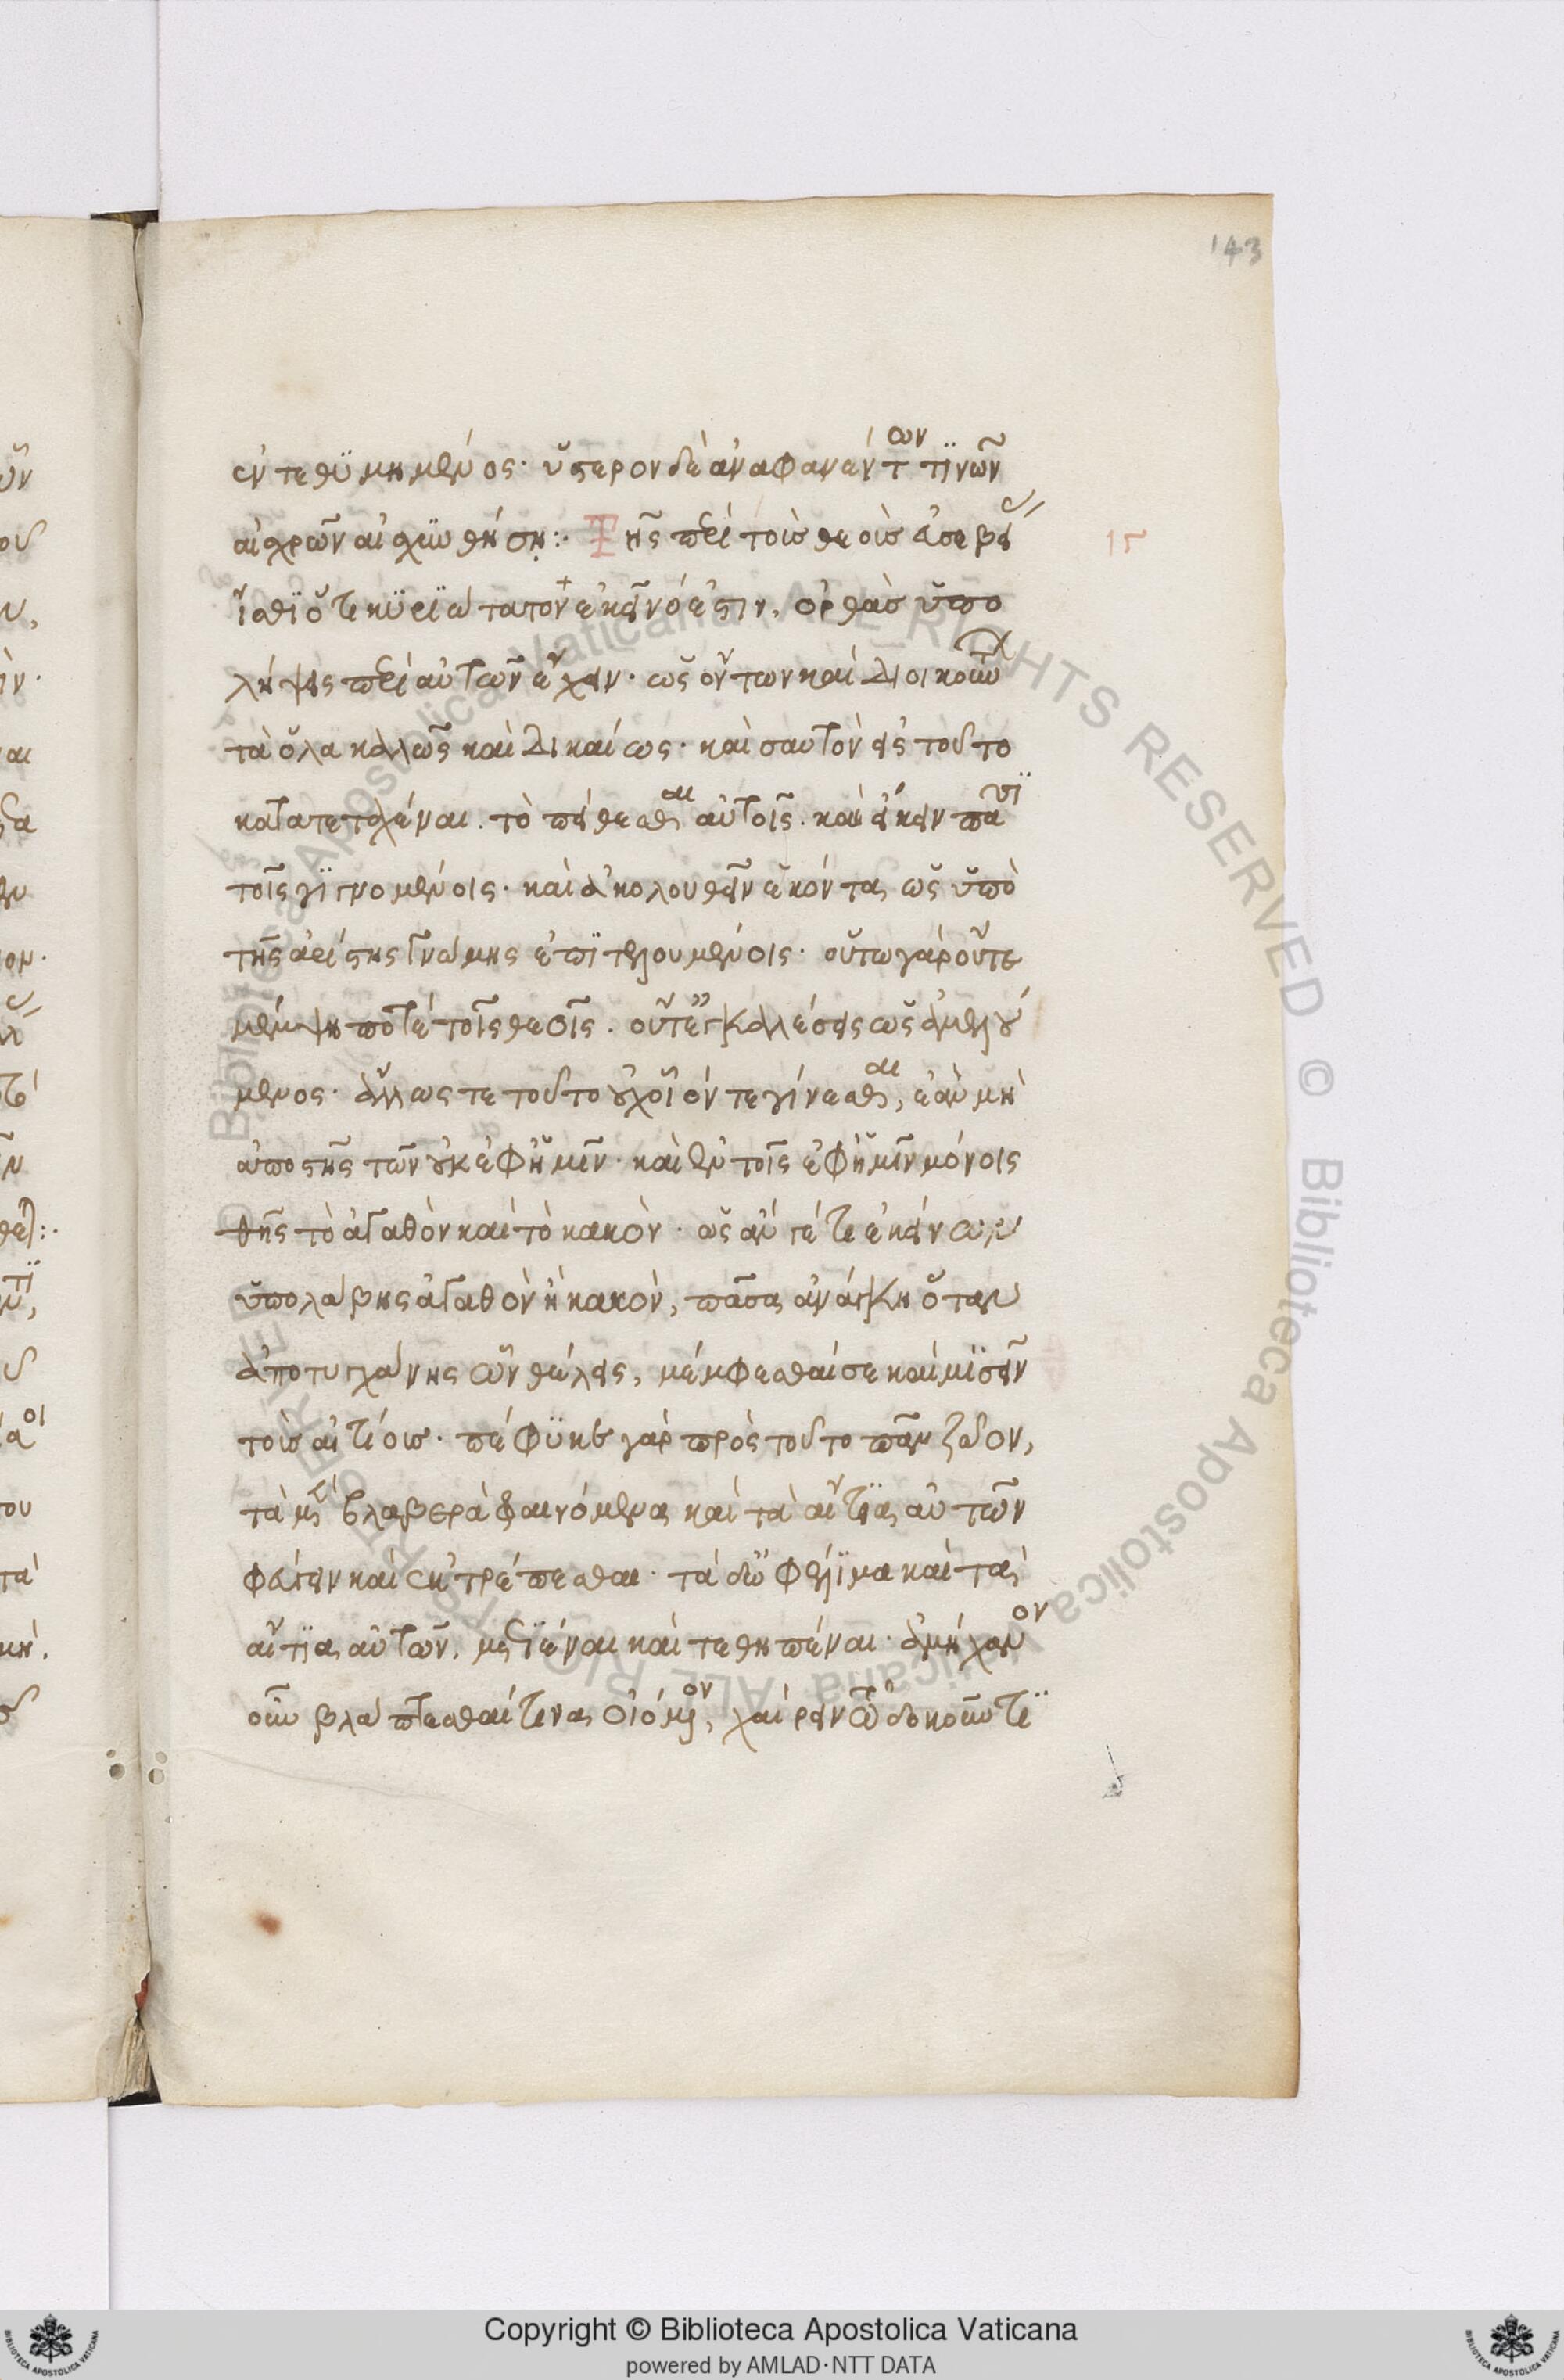 143
ἐντεθυμημένος· ὕστερον δὲ ἀναφανέντων τινῶν
αἰσχρῶν αἰσχυνθήσῃ:· Τῆς περὶ τοὺς θεοὺς εὐσεβείας
ἴσθι ὅτι κυριώτατον ἐκεῖνό ἐστιν, ὀρθὰς ὑπο
λήψεις περὶ αὐτῶν ἔχειν· ὡς ὄντων καὶ διοικούντων
τὰ ὅλα καλῶς καὶ δικαίως· καὶ σαυτὸν εἰς τοῦτο
κατατεταχέναι. τὸ πείθεσθαι αὐτοῖς. καὶ εἴκειν πᾶσι
τοῖς γιγνομένοις· καὶ ἀκολουθεῖν ἑκόντας ὡς ὑπὸ
τῆς ἀρίστης γνώμης ἐπιτελουμένοις· οὕτω γὰρ οὔτε
μέμψῃ ποτὲ τοῖς θεοῖς. οὔτε ἐγκαλέσεις ὡς ἀμελού
μενος· ἄλλως τε τοῦτο οὐχ οἷόν τε γίνεσθαι, ἐὰν μὴ
ἀποστῇς τῶν οὐκ ἐφ ἡμῖν· καὶ ἐν τοῖς ἐφ ἡμῖν μόνοις
θῇς τὸ ἀγαθὸν καὶ τὸ κακὸν· ὡς ἄν γέ τι ἐκείνων
ὑπολάβῃς ἀγαθὸν ἢ κακὸν, πᾶσα ἀνάγκη ὅταν
ἀποτυγχάνῃς ὧν θέλεις, μέμφεσθαί σε καὶ μισεῖν
τοὺς αἰτίους· πέφυκε γὰρ πρὸς τοῦτο πᾶν ζῶον,
τὰ μὲν βλαβερὰ φαινόμενα καὶ τὰ αἴτια αὐτῶν
φεύγειν καὶ ἐκτρέπεσθαι· τὰ δ ὠφέλιμα καὶ τὰ
αἴτια αὐτῶν, μετιέναι καὶ τεθηπέναι· ἀμήχανον
οὖν βλάπτεσθαί τινα οἰόμενον, χαίρειν τῷ δοκοῦντι
Copyright © Biblioteca Apostolica Vaticana
powered by AMLAD·NTT DATA